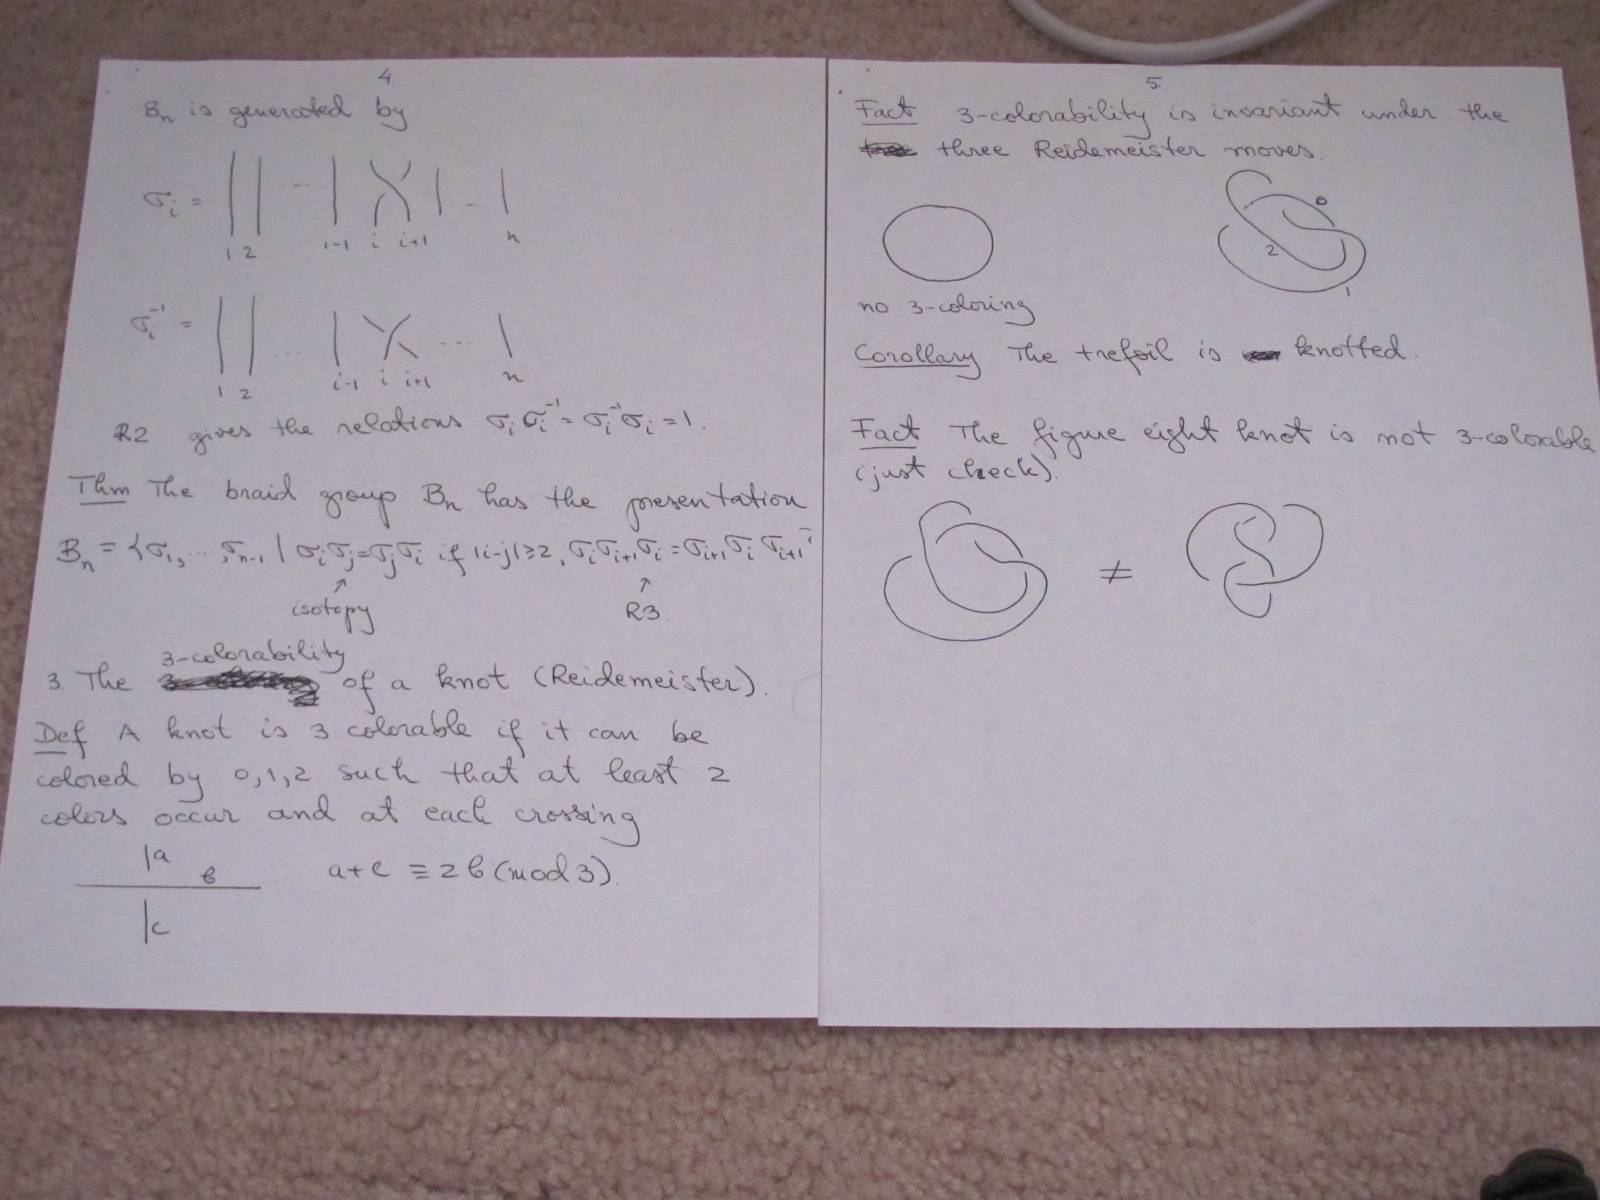 4.
Bₙ is generated by
σᵢ = ... ...
1 2 i-1 i i+1 n
σᵢ⁻¹ = ... ...
1 2 i-1 i i+1 n
R2 gives the relations σᵢσᵢ⁻¹ = σᵢ⁻¹σᵢ = 1.
Thm The braid group Bₙ has the presentation
Bₙ = {σ₁, ..., σₙ₋₁ | σᵢσⱼ = σⱼσᵢ if |i-j| ≥ 2, σᵢσᵢ₊₁σᵢ = σᵢ₊₁σᵢσᵢ₊₁}
↑ ↑
isotopy R3.
3-colorability
3. The of a knot (Reidemeister).
Def A knot is 3 colorable if it can be
colored by 0,1,2 such that at least 2
colors occur and at each crossing
a b a+c ≡ 2b (mod 3).
c
5.
Fact 3-colorability is invariant under the
three Reidemeister moves.
0
2
1
no 3-coloring
Corollary The trefoil is knotted.
Fact The figure eight knot is not 3-colorable
(just check).
≠